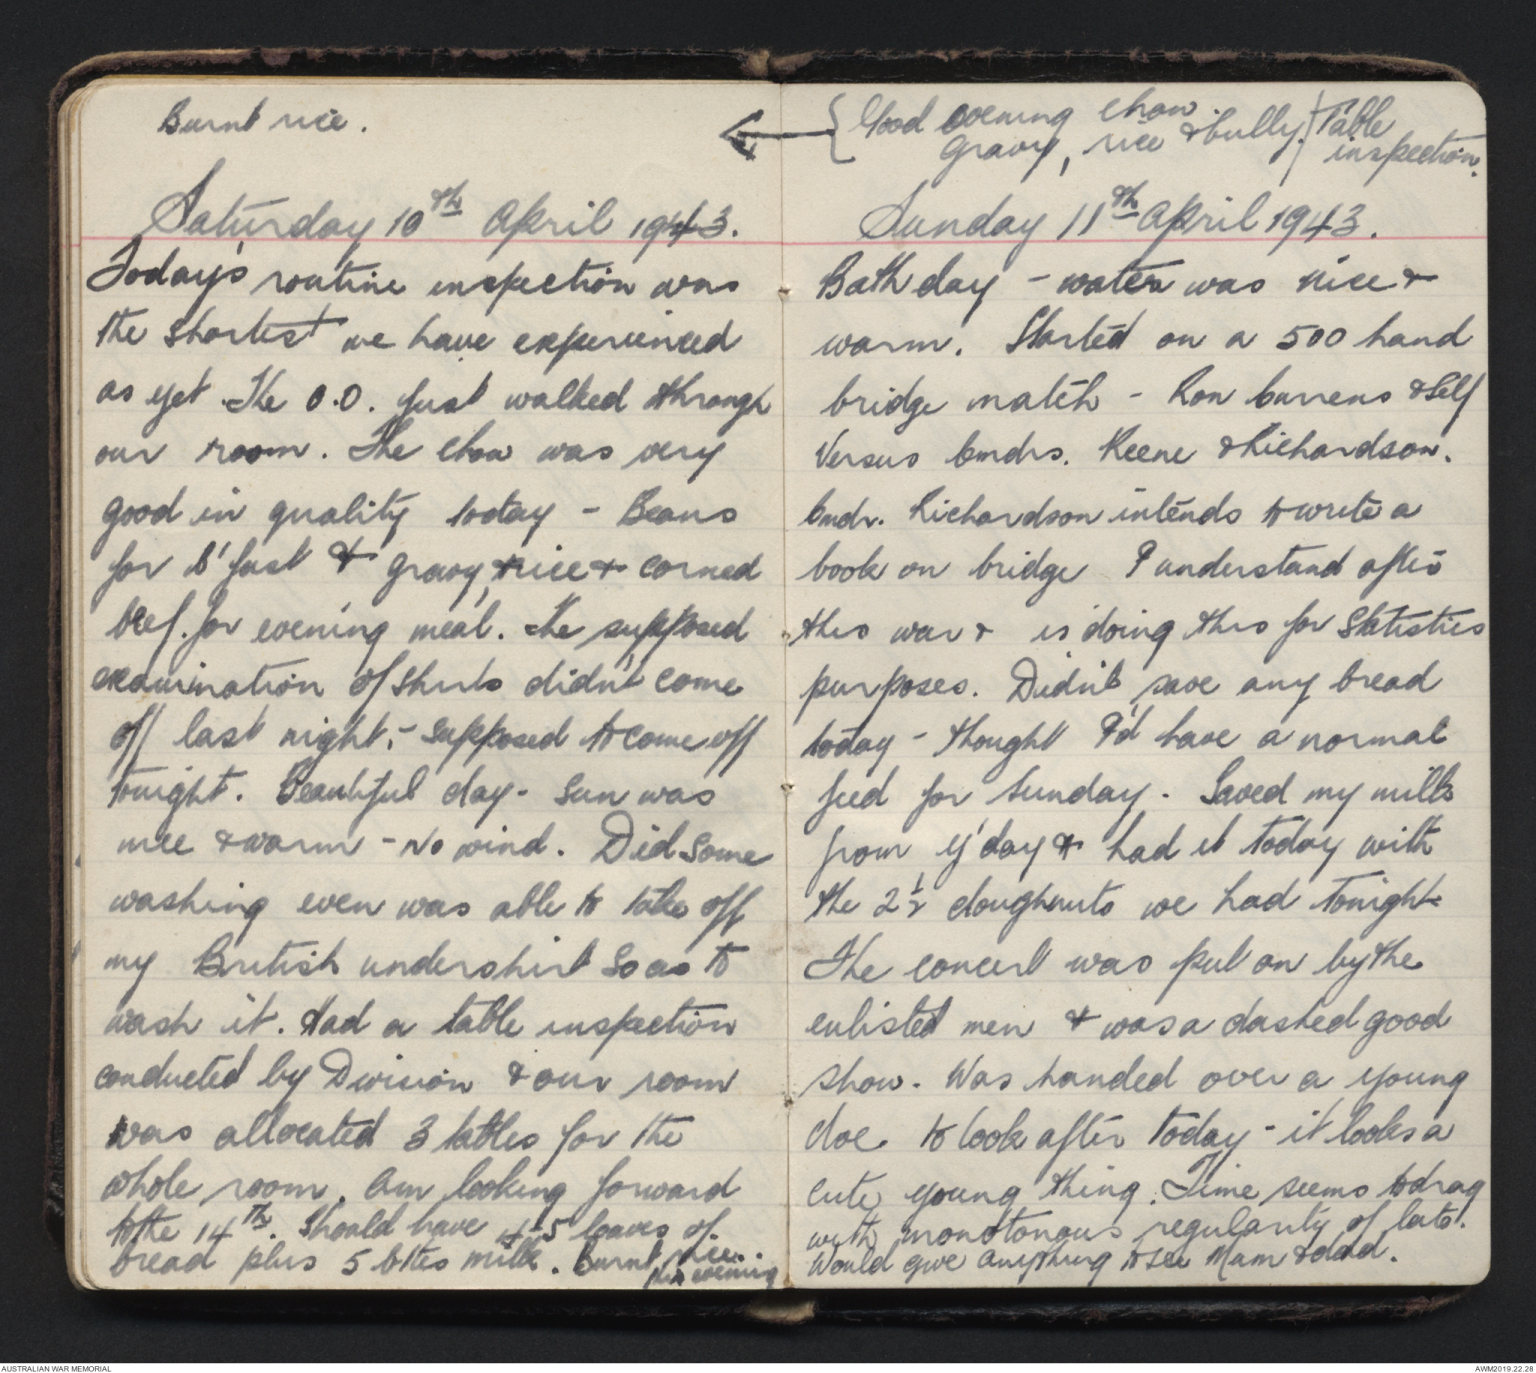 Burnt rice.
Saturday 10th April 1943.
Today's routine inspection was
the shortest we have experienced
as yet. The O.O. just walked through
our room. The chow was very
good in quality today - Beans
for b'fast & gravy, rice & corned
beef for evening meal. The supposed
examination of shirts didn't come
off last night, - supposed to come off
tonight. Beautiful day - Sun was
nice & warm - No wind. Did some
washing even was able to take off
my British undershirt so as to
wash it. Had a table inspection
conducted by Division & our room
was allocated 3 tables for the
whole room. Am looking forward
to the 14th. Should have 4-5 loaves of
bread plus 5 bttes milk. Burnt rice
this evening
Good evening chow.
Gravy, rice & bully.
Table
inspection.
Sunday 11th April 1943.
Bath day - water was nice &
warm. Started on a 500 hand
bridge match - Ron & Self
Versus Bmdrs. Keene & Richardson.
Bmdr. Richardson intends to write a
book on bridge I understand after
this war & is doing this for Statistics
purposes. Didn't save any bread
today - thought I'd have a normal
feed for Sunday. Saved my milk
from y'day & had it today with
the 2½ doughnuts we had tonight.
The concert was put on by the
enlisted men & was a dashed good
show. Was handed over a young
doe to look after today - it looks a
cute young thing. Time seems to drag
with monotonous regularity of late.
Would give anything to see Mum & dad.
AUSTRALIAN WAR MEMORIAL
AWM2019.22.28